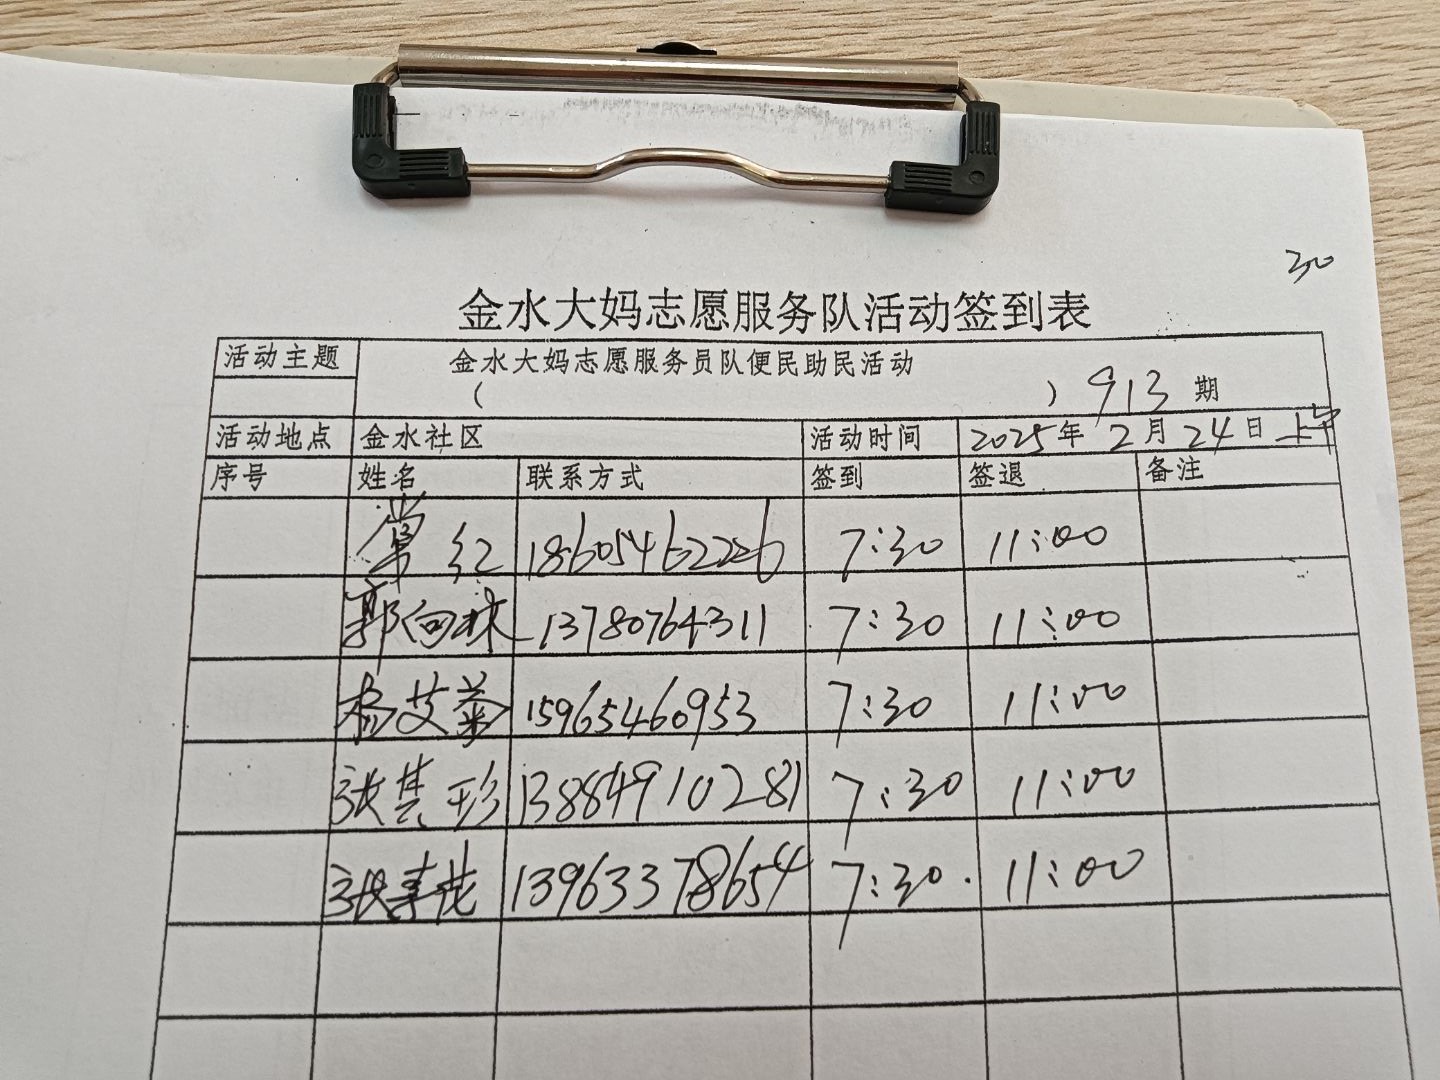 30
金水大妈志愿服务队活动签到表
活动主题 金水大妈志愿服务员队便民助民活动
( ) 913 期
活动地点 金水社区 活动时间 2025年 2月 24日 上午
序号 姓名 联系方式 签到 签退 备注
常红 18605462226 7:30 11:00
郭向林 13780764311 7:30 11:00
杨艾菊 15965460953 7:30 11:00
张其彤 13884910281 7:30 11:00
张春花 13963378654 7:30 11:00